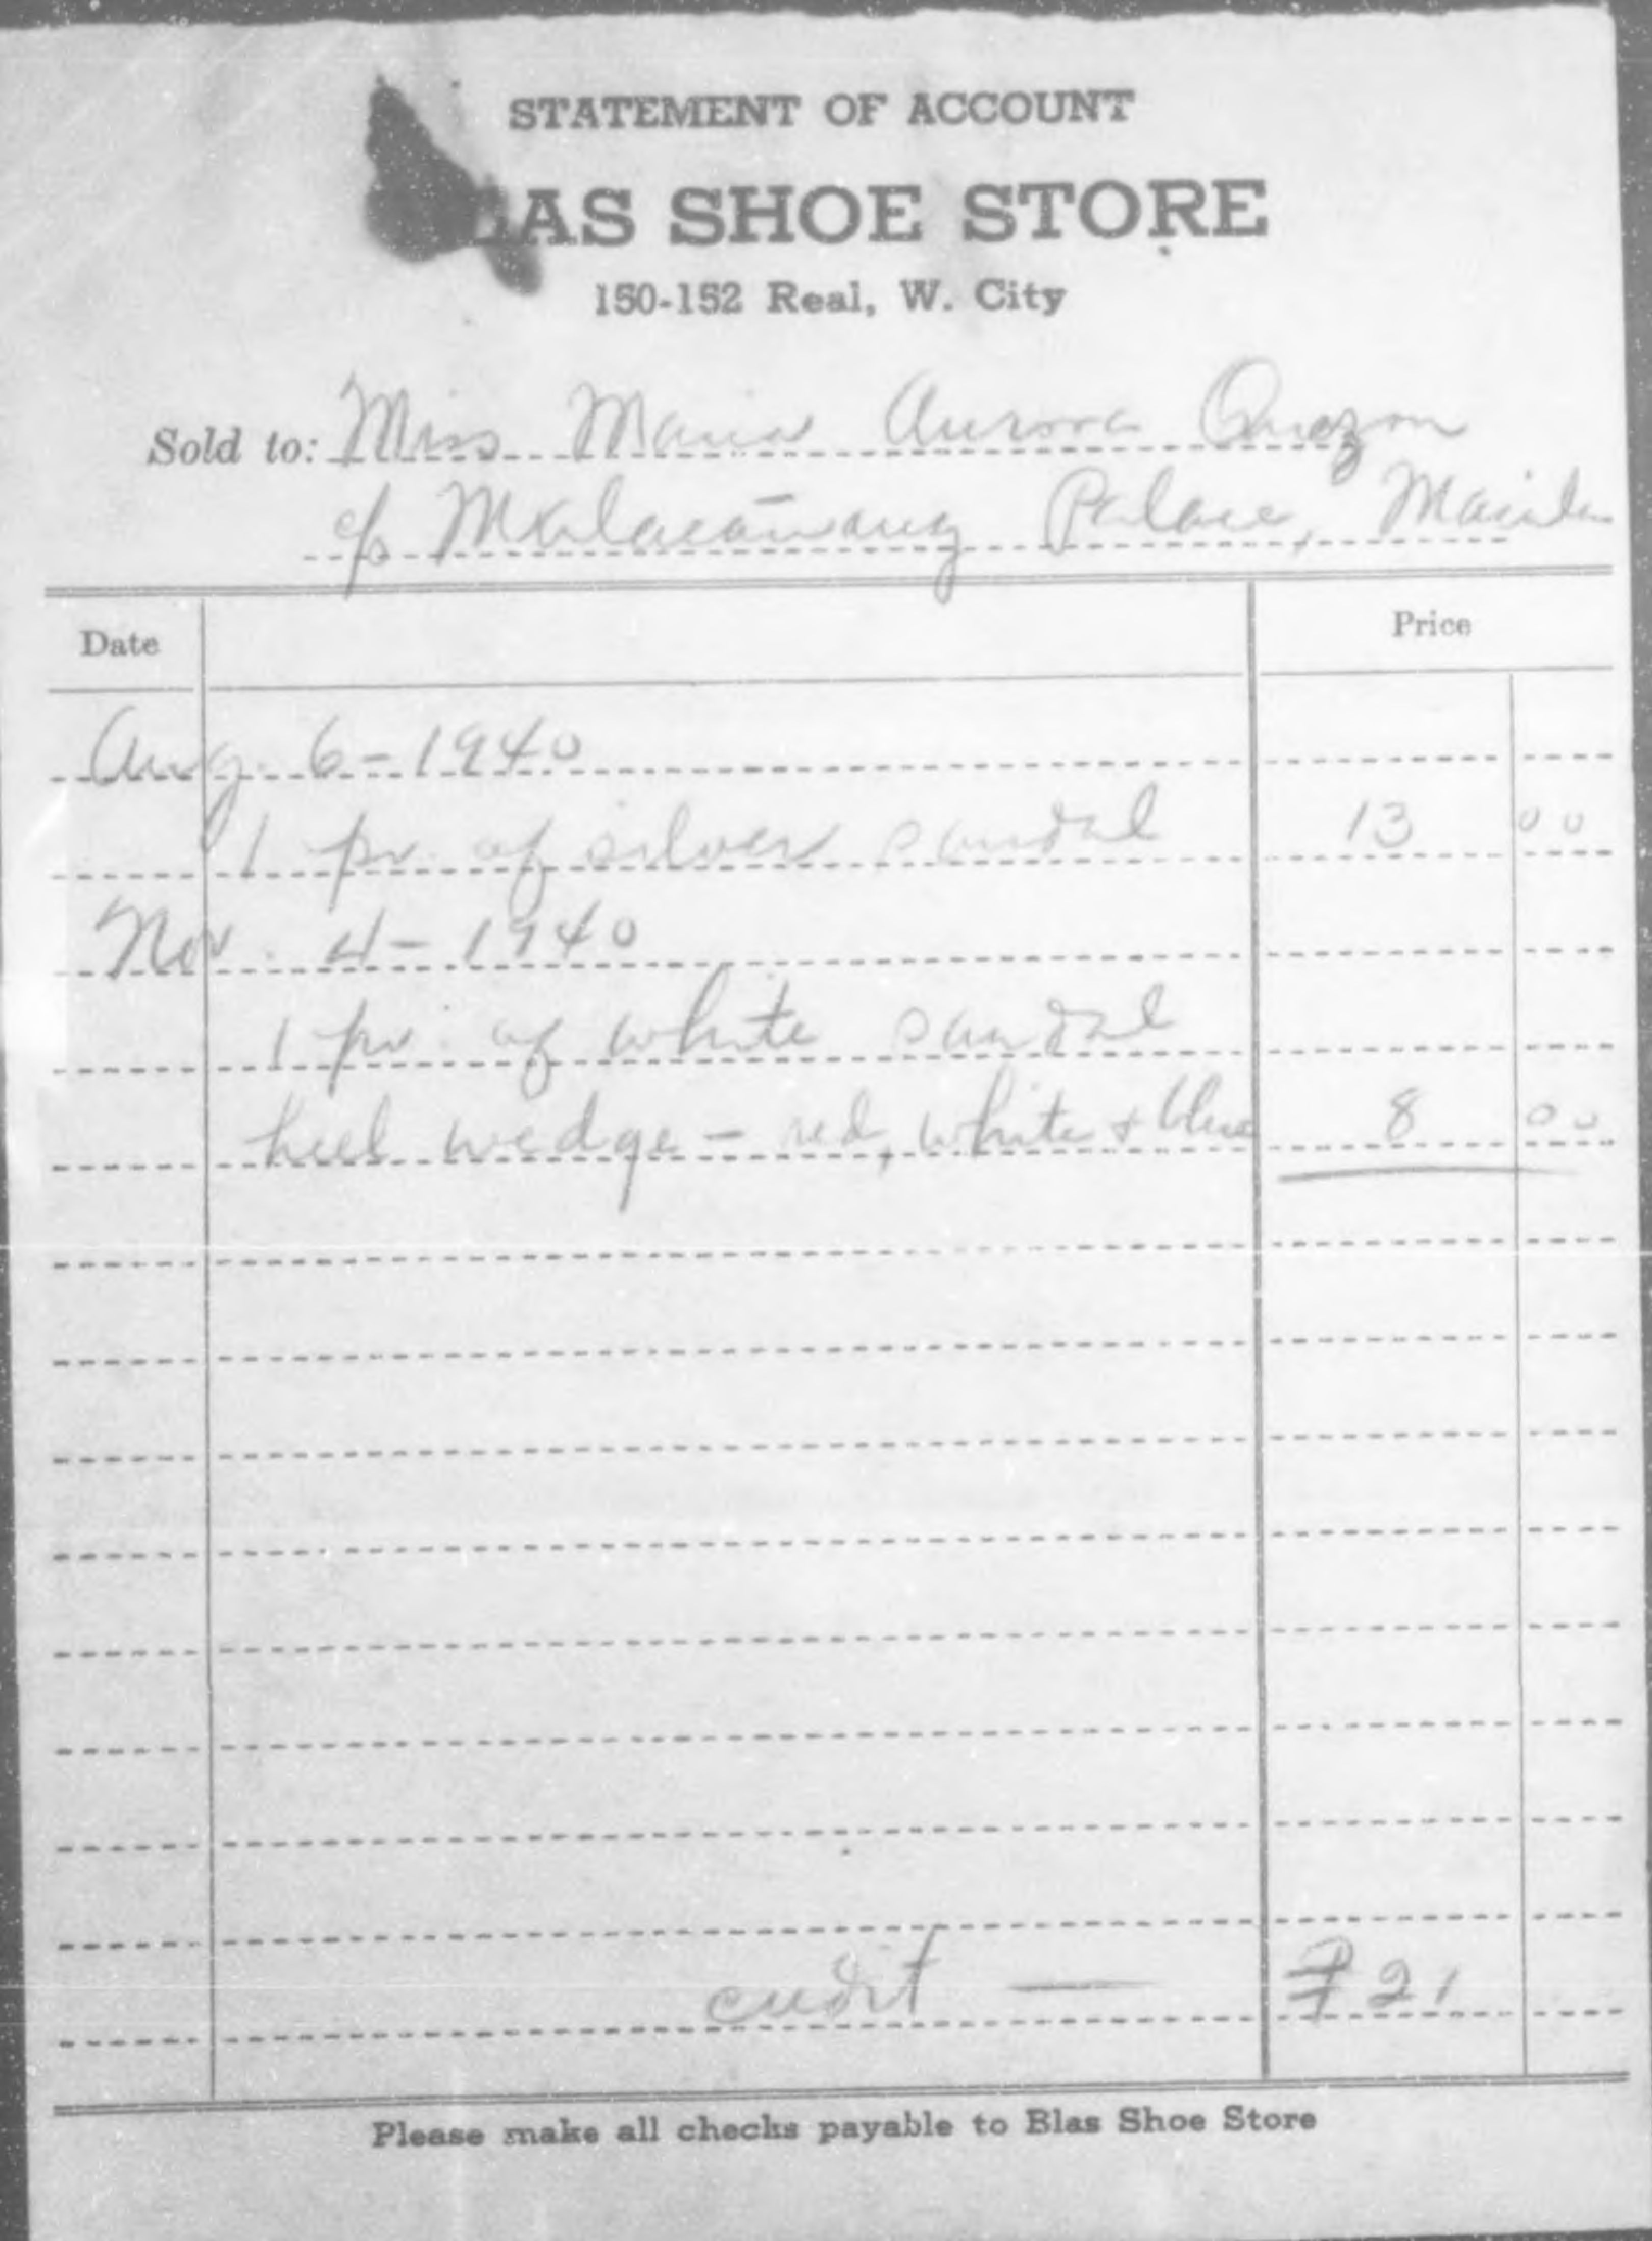 STATEMENT OF ACCOUNT
LAS SHOE STORE
150-152 Real, W. City
Sold to: Miss Maria Aurora Quezon
c/o Malacañang Palace, Manila
Date Price
Aug. 6-1940
1 pr. of silver sandal 13 00
Nov. 4-1940
1 pr. of white sandal
heel wedge - red, white + blue 8 00
credit — ₱21
Please make all checks payable to Blas Shoe Store